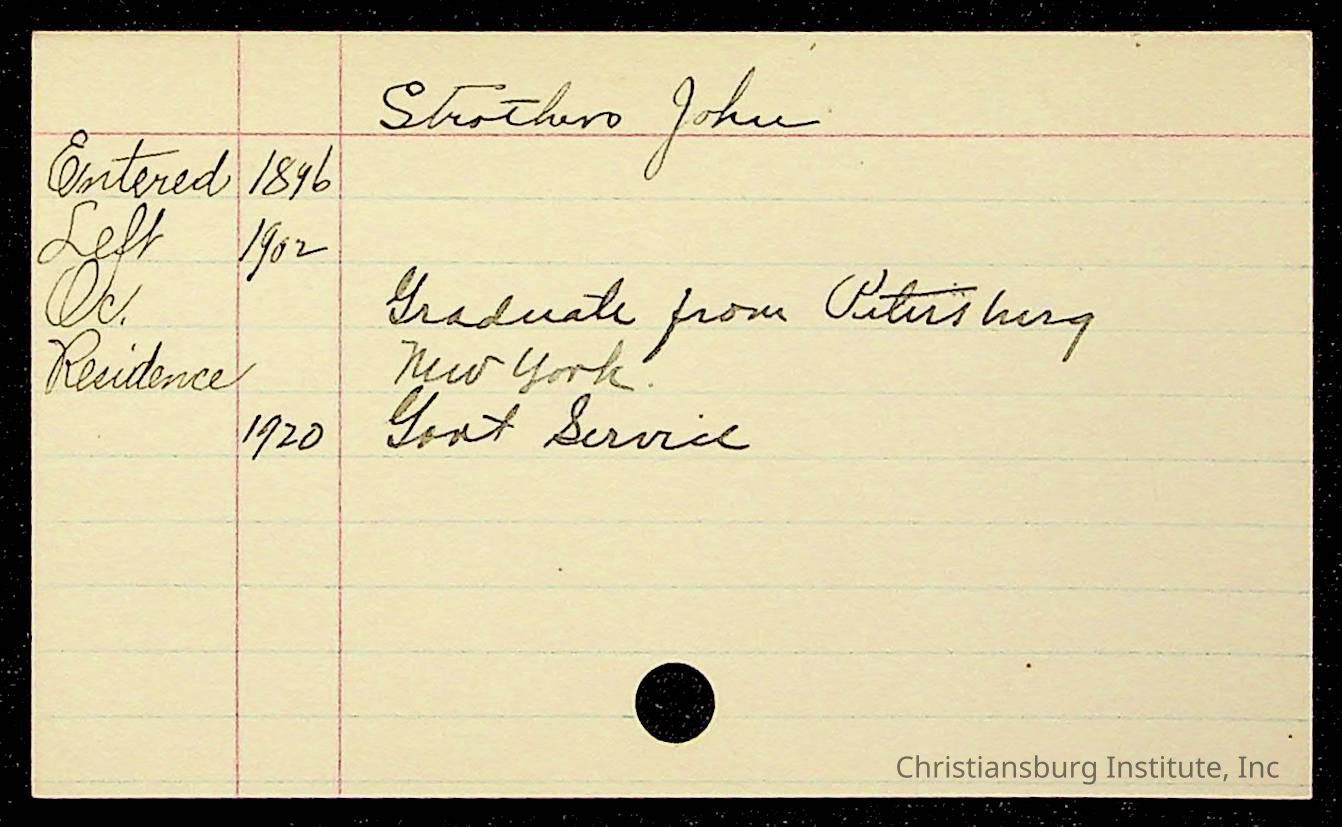 Strothers John
Entered 1896
Left 1902
Oc. Graduate from Petersburg
Residence New York.
1920 Govt Service
Christiansburg Institute, Inc